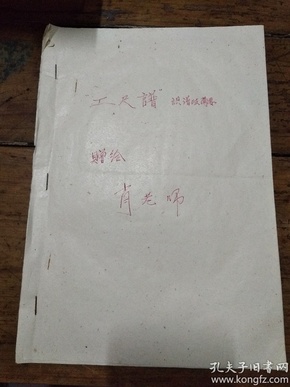 "工尺譜"识谱收萧各
赠给
肖老师
孔夫子旧书网
www.kongfz.com